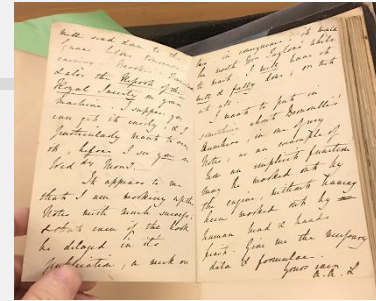 will send down to the
evening
Dates the Report of the
Royal Society on your
machine. I suppose you
can get it easily, & I
particularly want to see
it, before I see you on
Wed dy Morn g.
It appears to me
that I am working up the
Notes with much success;
& that even if the book
be delayed in it's
publication, a week or
two, in consequence, it would
be worth Mr Taylor's while
to wait. I will have it
well & fully done; or not
at all.
I want to put in
something about Bernoulli's
Numbers, in one of my
Notes, as an example of
how an implicit function
may be worked out by
the engine, without having
been worked out by
human head & hands
first. Give me the necessary
data & formulae.
Yours ever
A. A. L